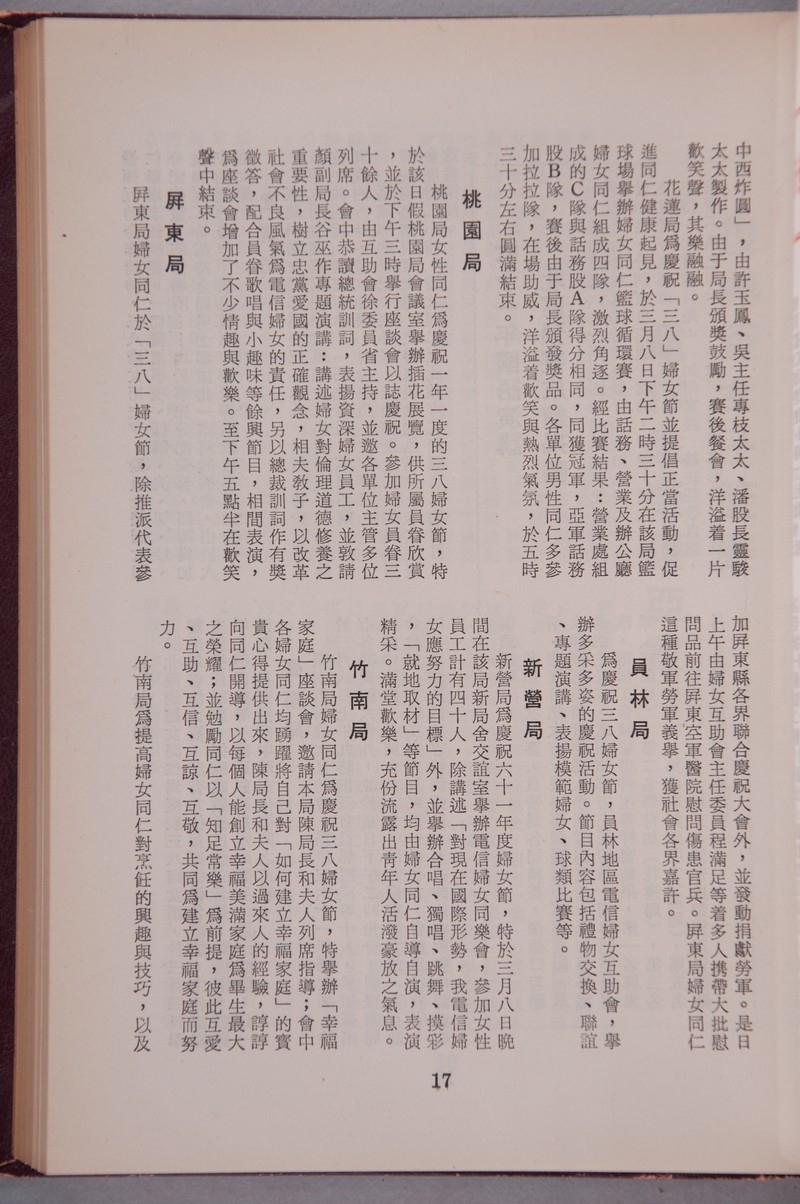 中西炸圓」，由許玉鳳、吳主任專枝太太、潘股長靈駿
太太製作。由于局長頒獎鼓勵，賽後餐會，洋溢着一片
歡笑聲，其樂融融。
花蓮局爲慶祝「三八」婦女節並提倡正當活動，促
進同仁健康起見，於三月八日下午二時三十分在該局籃
球場舉辦婦女同仁籃球循環賽，由話務、營業及辦公廳
婦女同仁組成四隊，激烈角逐。經比賽結果：營業處組
成的C隊與話務股A隊得分相同，同獲冠軍，亞軍話務
股B隊，賽後由于局長頒發獎品。各單位男性同仁多參
加拉拉隊，在場助威，洋溢着歡笑與熱烈氣氛，於五時
三十分左右圓滿結束。
桃園局
桃園局女性同仁爲慶祝一年一度的三八婦女節，特
於該日假桃園局會議室舉辦插花展覽，供所屬員眷欣賞
，並於下午三時舉行座談會以誌慶祝。參加婦女員眷三
十餘人，由互助會徐委員省主持，並邀各單位主管多位
列席。會中恭讀總統訓詞，表揚資深婦女員工，並敦請
顏副局長谷巫作專題演講：講述婦女對倫理道德修養之
重要性，樹立忠黨愛國的正確觀念，相夫教子，以改革
社會不良風氣爲電信婦女的責任，另以總裁訓詞作有獎
徵答，配合員眷歌唱與小趣味等餘興節目，相間表演，
爲座談會增加了不少情趣與歡樂。至下午五點半在歡笑
聲中結束。
屏東局
屏東局婦女同仁於「三八」婦女節，除推派代表參
加屏東縣各界聯合慶祝大會外，並發動捐獻勞軍。是日
上午由婦女互助會主任委員程滿足等着多人携帶大批慰
問品前往屏東空軍醫院慰問傷患官兵。屏東局婦女同仁
這種敬軍勞軍義舉，獲社會各界嘉許。
員林局
爲慶祝三八婦女節，員林地區電信婦女互助會，舉
辦多采多姿的慶祝活動。節目內容包括禮物交換、聯誼
、專題演講、表揚模範婦女、球類比賽等。
新營局
新營局爲慶祝六十一年度婦女節，特於三月八日晚
間在該局新局舍交誼室舉辦電信婦女同樂會，參加女性
員工計有四十人，除講述「對現在國際形勢，我電信婦
女應努力的目標」外，並舉辦合唱、獨唱、跳舞、摸彩
，「就地取材」等節目，均由婦女同仁自導自演，表演
精采。滿堂歡樂，充份流露出靑年人活潑豪放之氣息。
竹南局
竹南局婦女同仁爲慶祝三八婦女節，特舉辦「幸福
家庭」座談會，邀請本局陳局長和夫人列席指導；會中
各婦女同仁均踴躍將自己對「如何建立幸福家庭」的寶
貴心得提供出來，陳局長和夫人以過來人的經驗，諄諄
向同仁開導，以每個人能創立幸福美滿家庭爲畢生最大
之榮耀；並勉勵同仁以「知足常樂」爲前提，彼此互愛
、互助、互信、互諒、互敬，共同爲建立幸福家庭而努
力。
竹南局爲提高婦女同仁對烹飪的興趣與技巧，以及
17